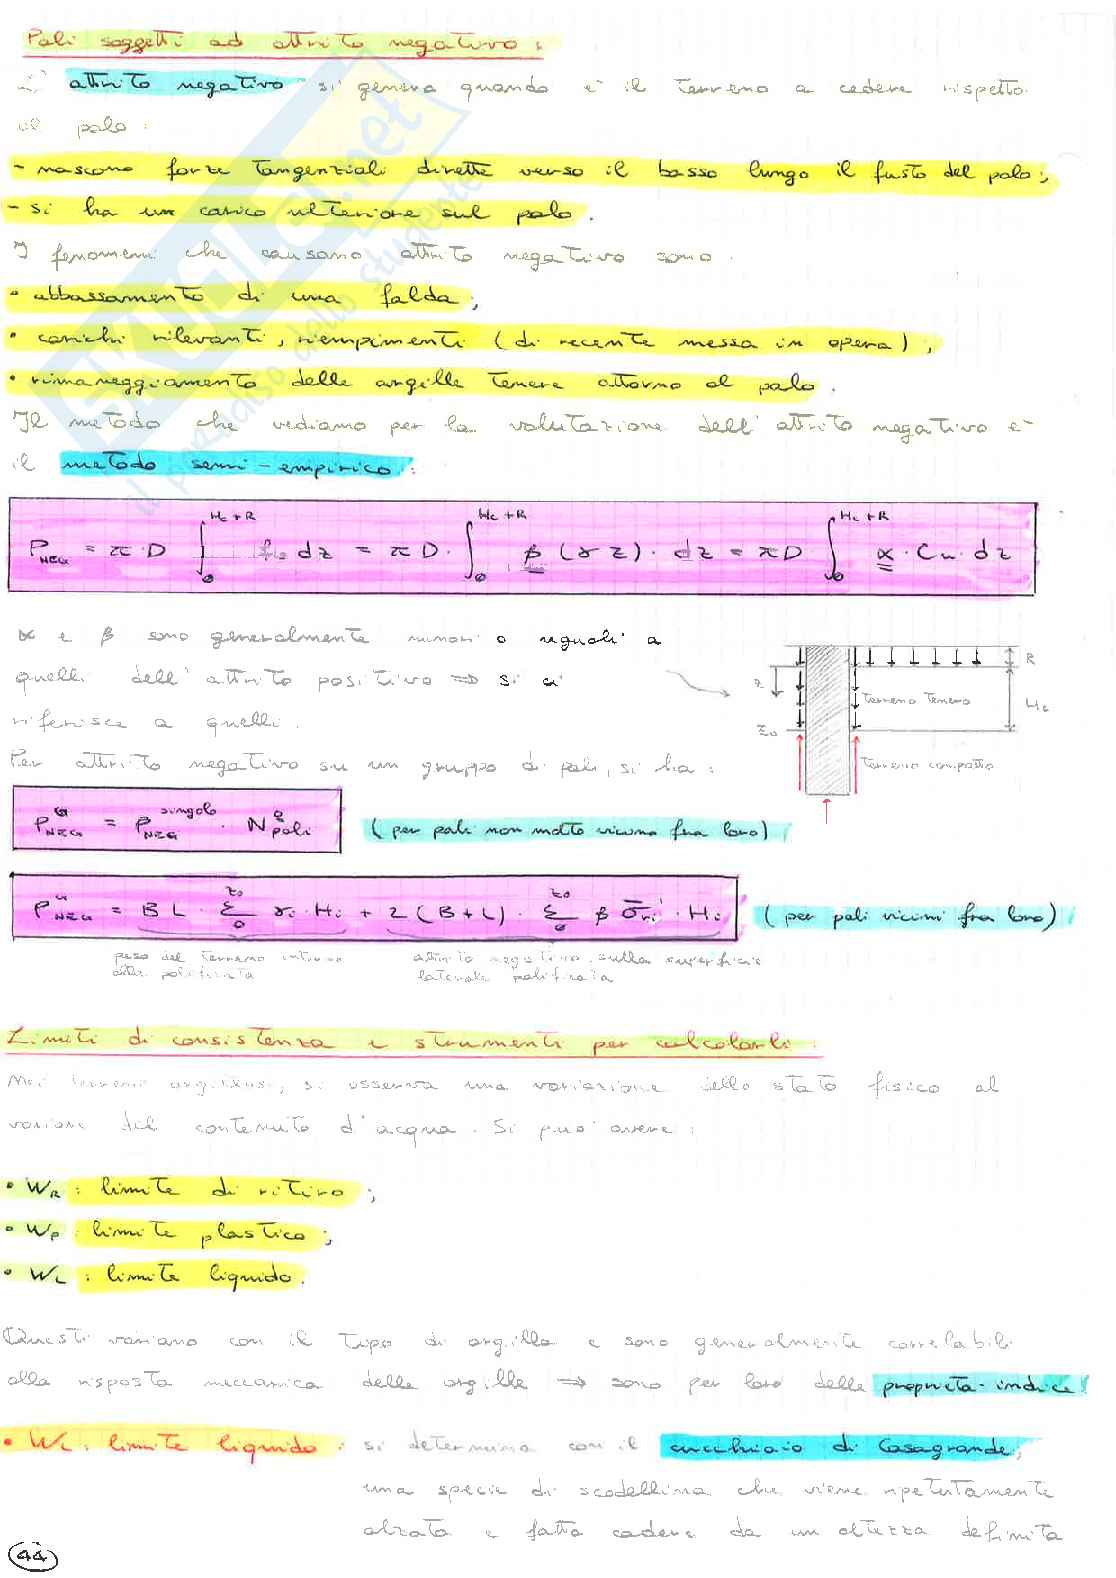 Pali soggetti ad attrito negativo:
L' attrito negativo si genera quando è il terreno a cedere rispetto
al palo:
- nascono forze tangenziali dirette verso il basso lungo il fusto del palo;
- si ha un carico ulteriore sul palo.
I fenomeni che causano attrito negativo sono:
• abbassamento di una falda;
• carichi rilevanti, riempimenti (di recente messa in opera);
• rimaneggiamento delle argille tenere attorno al palo.
Il metodo che vediamo per la valutazione dell'attrito negativo è
il metodo semi-empirico:
P_NEG = π·D ∫_0^{Hc+R} dz = πD·∫_0^{Hc+R} β(γz)·dz = πD ∫_0^{Hc+R} α·Cu·dz
α e β sono generalmente minori o uguali a
quelli dell'attrito positivo ⇒ si ci
riferisce a quelli.
R
z
terreno tenero
Hc
z0
terreno compatto
Per attrito negativo su un gruppo di pali, si ha:
P_NEG^G = P_NEG^singolo · N°pali (per pali non molto vicini fra loro)
P_NEG^G = BL·Σ_0^{z0} γi·Hi + 2(B+L)·Σ_0^{z0} β σ̄'vi·Hi (per pali vicini fra loro)
peso del terreno interno alla palificata
attrito negativo sulla superficie laterale palificata
Limiti di consistenza e strumenti per calcolarli:
Nei terreni argillosi, si osserva una variazione dello stato fisico al
variare del contenuto d'acqua. Si può avere:
• WR: limite di ritiro;
• WP: limite plastico;
• WL: limite liquido.
Questi variano con il tipo di argilla e sono generalmente correlabili
alla risposta meccanica delle argille ⇒ sono per loro delle proprietà-indice!
• WL: limite liquido: si determina con il cucchiaio di Casagrande,
una specie di scodellina che viene ripetutamente
alzata e fatta cadere da un altezza definita
44
SKUOLA.net
il paradiso dello studente